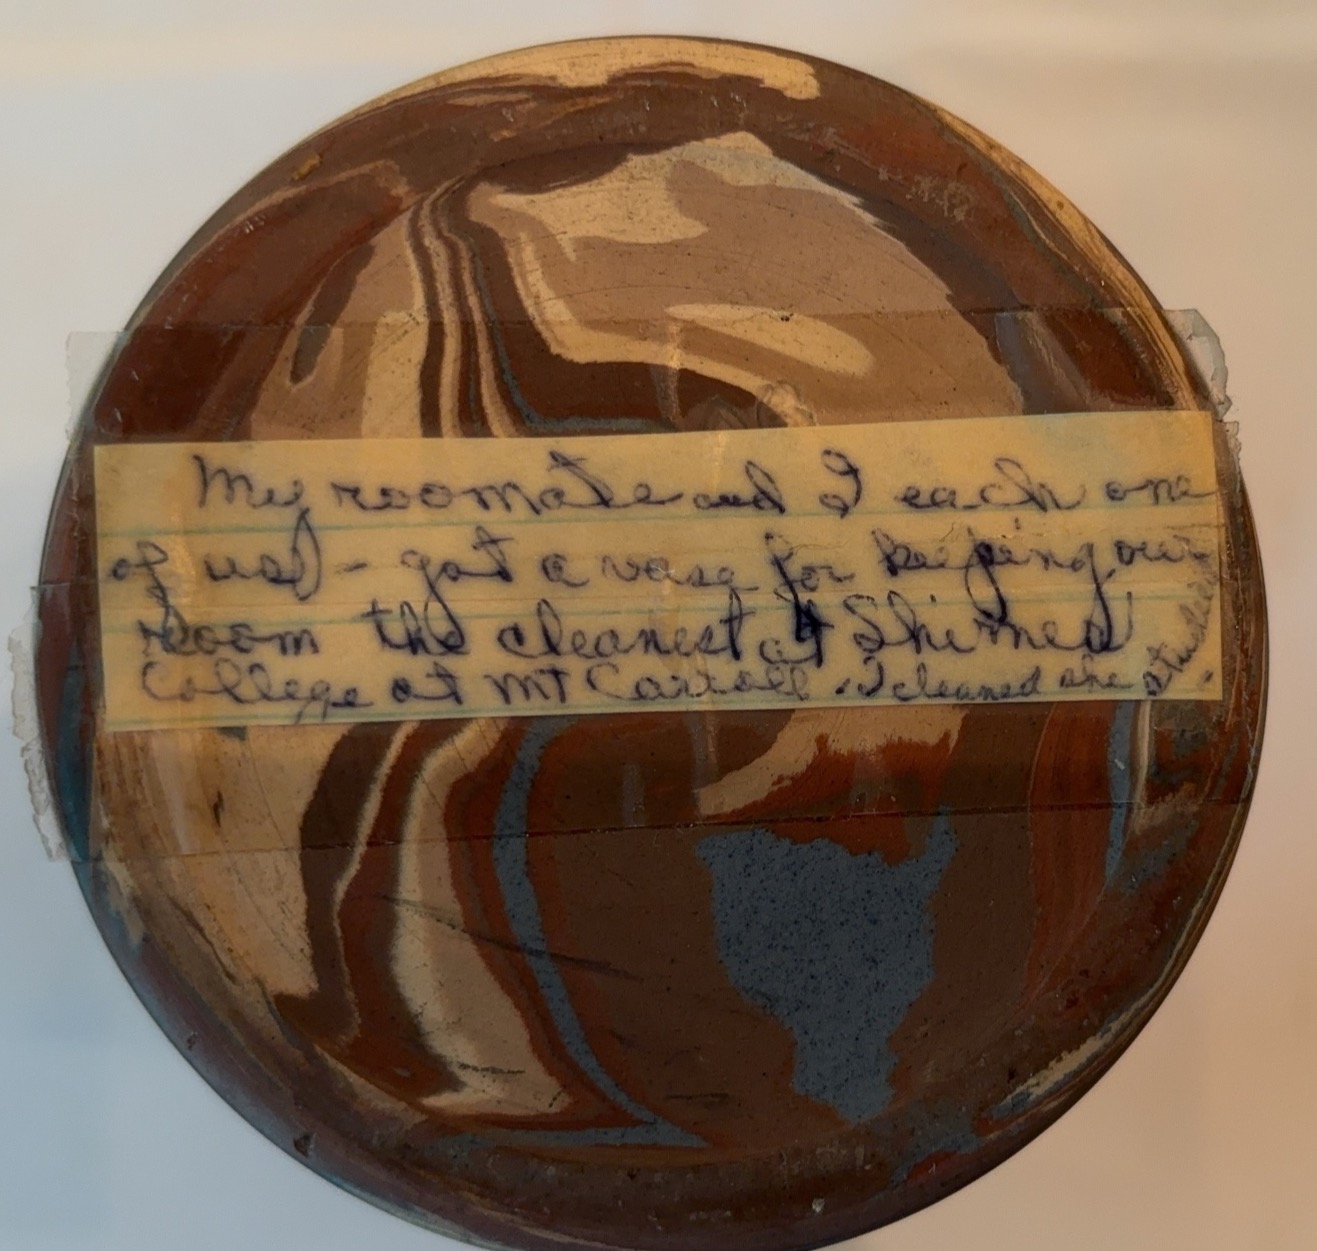 My roomate and I each one
of us - got a vase for keeping our
room the cleanest at Shimer
College at Mt Carroll. I cleaned she studied.